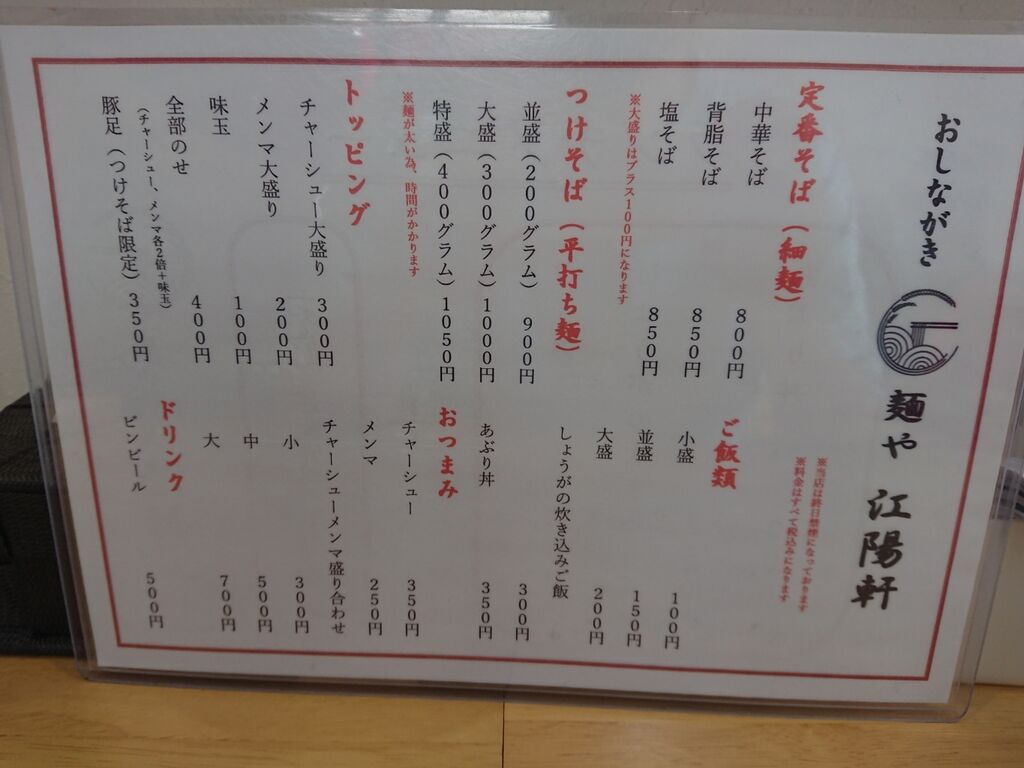 おしながき
麺や 江陽軒
※当店は終日禁煙になっております
※料金はすべて税込みになります
定番そば（細麺）
中華そば 800円
背脂そば 850円
塩そば 850円
※大盛りはプラス100円になります
つけそば（平打ち麺）
並盛（200グラム） 900円
大盛（300グラム）1000円
特盛（400グラム）1050円
※麺が太い為、時間がかかります
トッピング
チャーシュー大盛り 300円
メンマ大盛り 200円
味玉 100円
全部のせ 400円
（チャーシュー、メンマ各2倍+味玉）
豚足（つけそば限定）350円
ご飯類
小盛 100円
並盛 150円
大盛 200円
しょうがの炊き込みご飯 300円
あぶり丼 350円
おつまみ
チャーシュー 350円
メンマ 250円
チャーシューメンマ盛り合わせ
小 300円
中 500円
大 700円
ドリンク
ビンビール 500円